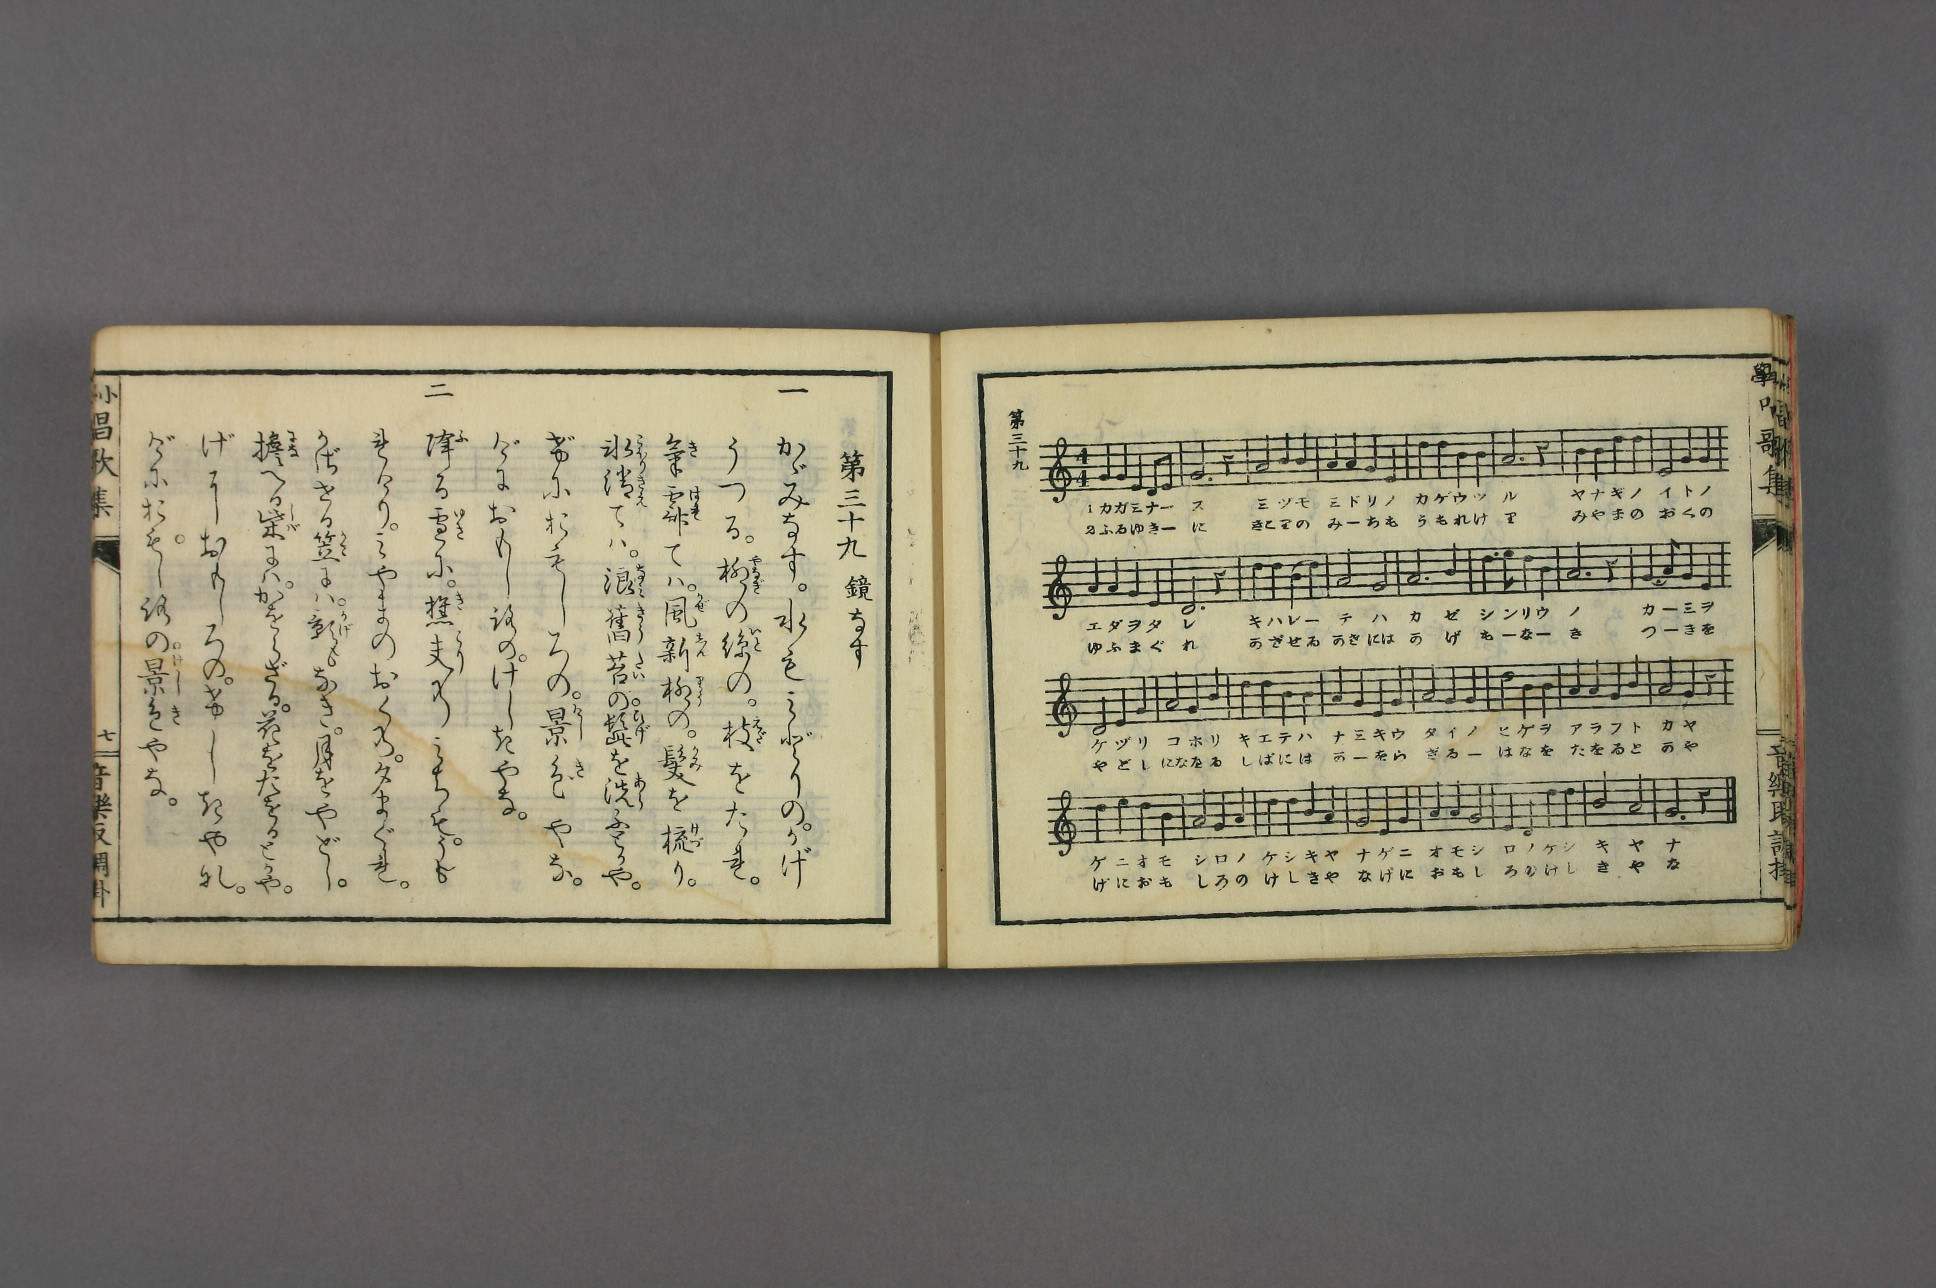 第三十九
1 カガミナース ミヅモ ミドリノ カゲウツル ヤナギノ イトノ
2 ふるゆきーに きこりの みーちも うもれけり みやまの おくの
エダヲタレ キハレーテハ カゼシンリウノ カーミヲ
ゆふまぐれ かざせるかさには かげもーなーき つーきを
ケヅリ コホリ キエテハ ナミキウ タイノ ヒゲヲ アラフト カヤ
やどし になをる しばには かーをら ざるー はなを たをると かや
ゲニオモ シロノ ケシキヤ ナゲニ オモシ ロノケシ キ ヤ ナ
げにおも しろの けしきや なげに おもし ろのけし き や な
第三十九 鏡なす
一
かゞみなす。水もみどりの。かげ
うつる。柳の絲の。枝をたれ。
氣霽てハ。風新柳の。髮を梳り。
氷消てハ。浪舊苔の。髭を洗ふとかや。
げにおもしろの。景色やな。
げにおもしろの。けしきやな。
二
降る雪に。樵夫のみちも。うも
れけり。みやまのおくの。夕まぐれ。
かざせる笠にハ。影もなき。月をやどし。
擔へる柴にハ。かをらざる。花をたをるとかや。
げにおもしろの。けしきやな。
げにおもしろの。景色やな。
唱歌集
七